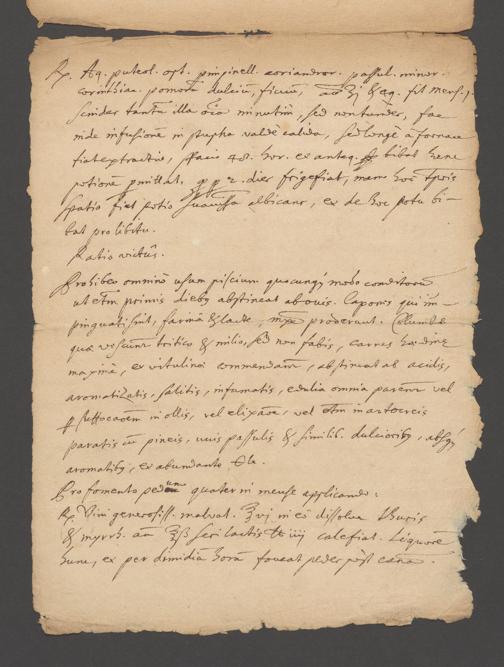 Rx. Aq. puteol. opt. pimpinell. coriandror. passul. minor.
corinthiac. pomorū dulciū, ficuū, aā ℥j &
scindet tantū illa oīa minutim, sed non tundet, fac
inde infusionē in valde calida, sed longè a fornace
fiat extractio, spatio 48. hor. ex
potionē 2. dies frigefiat, nam hoc tp̄ois
spatio fiet potio albicans, ex de hoc potu bi-
bat pro libitu.
Ratio victûs.
Prohibeo omninò usum piscium quocunq; modo conditorū
ut etm̄ primis dieb9 abstineat ab ouis. Capones qui im-
pinguati sint, farinā & lacte, proderunt. Columbæ
quæ vescunt tritico & milio, sed non fabis, carnes hœdinæ
maximè, ex vitulinæ commendant, abstineat ab acidis,
aromatizatis, salitis, infumatis, edulia omnia parent vel
suffocatōem in ollis, vel elixatōe, vel etm in artocreis
paratis cū pineis, uuis passulis & similib. dulciorib9, absq;
aromatib9, ex abundante
Pro fomento pedum quater in mense applicando:
Rx. Vini generosiss. malvat. ℥vj in eo dissolve thuris
& myrrh. aā ℥ß seri lactis iiij calefiat. Liquore
hunc, ex per dimidiā horā foveat pedes post cœnā.